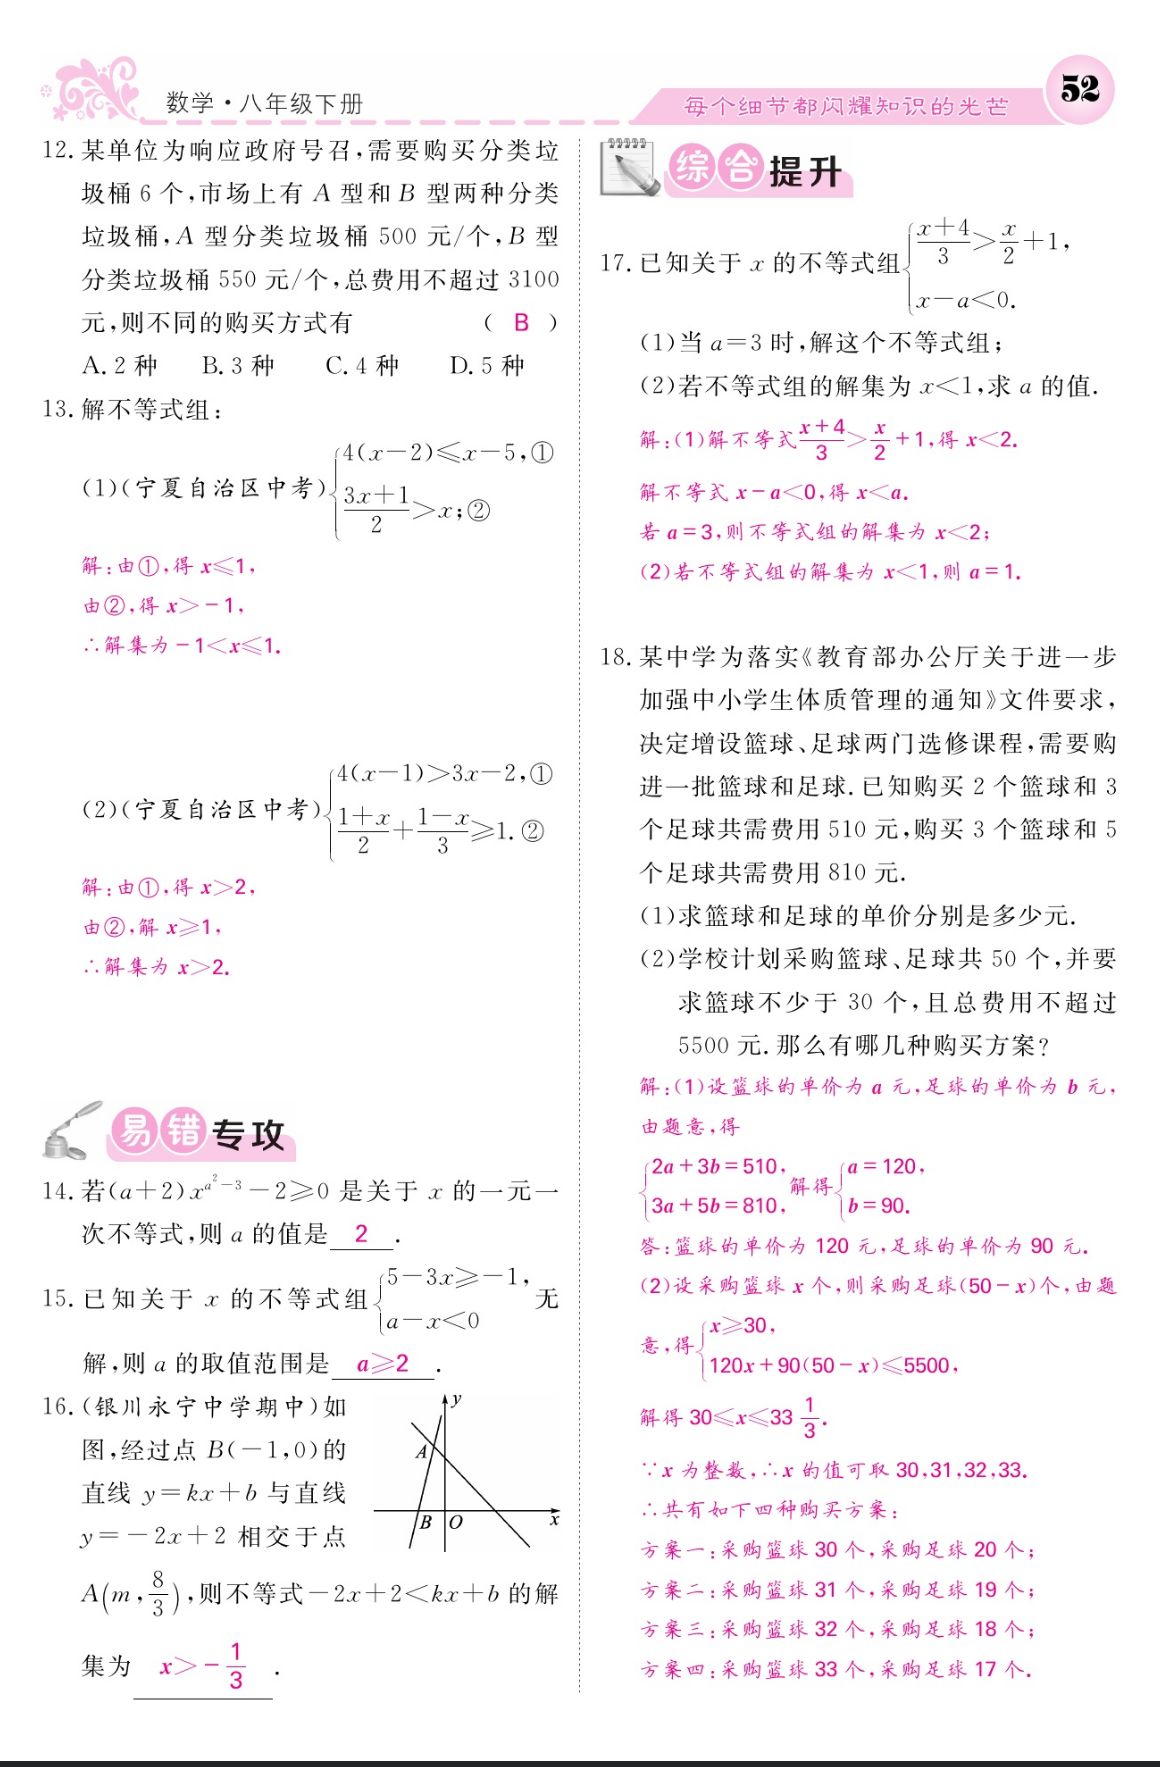 数学·八年级下册
每个细节都闪耀知识的光芒
52
12. 某单位为响应政府号召,需要购买分类垃
圾桶 6 个,市场上有 A 型和 B 型两种分类
垃圾桶,A 型分类垃圾桶 500 元/个,B 型
分类垃圾桶 550 元/个,总费用不超过 3100
元,则不同的购买方式有 ( B )
A. 2 种 B. 3 种 C. 4 种 D. 5 种
13. 解不等式组:
(1)(宁夏自治区中考){4(x-2)≤x-5,①
(3x+1)/2>x;②
解:由①,得 x≤1,
由②,得 x>-1,
∴解集为-1<x≤1.
(2)(宁夏自治区中考){4(x-1)>3x-2,①
(1+x)/2+(1-x)/3≥1.②
解:由①,得 x>2,
由②,解 x≥1,
∴解集为 x>2.
易错专攻
14. 若(a+2)x^(a²-3)-2≥0 是关于 x 的一元一
次不等式,则 a 的值是 2 .
15. 已知关于 x 的不等式组{5-3x≥-1, 无
a-x<0
解,则 a 的取值范围是 a≥2 .
16. (银川永宁中学期中)如
图,经过点 B(-1,0)的
直线 y=kx+b 与直线
y=-2x+2 相交于点
A(m,8/3),则不等式-2x+2<kx+b 的解
集为 x>-1/3 .
y
A
B
O
x
综合提升
17. 已知关于 x 的不等式组{(x+4)/3>x/2+1,
x-a<0.
(1)当 a=3 时,解这个不等式组;
(2)若不等式组的解集为 x<1,求 a 的值.
解:(1)解不等式(x+4)/3>x/2+1,得 x<2.
解不等式 x-a<0,得 x<a.
若 a=3,则不等式组的解集为 x<2;
(2)若不等式组的解集为 x<1,则 a=1.
18. 某中学为落实《教育部办公厅关于进一步
加强中小学生体质管理的通知》文件要求,
决定增设篮球、足球两门选修课程,需要购
进一批篮球和足球.已知购买 2 个篮球和 3
个足球共需费用 510 元,购买 3 个篮球和 5
个足球共需费用 810 元.
(1)求篮球和足球的单价分别是多少元.
(2)学校计划采购篮球、足球共 50 个,并要
求篮球不少于 30 个,且总费用不超过
5500 元.那么有哪几种购买方案?
解:(1)设篮球的单价为 a 元,足球的单价为 b 元,
由题意,得
{2a+3b=510, 解得{a=120,
3a+5b=810, b=90.
答:篮球的单价为 120 元,足球的单价为 90 元.
(2)设采购篮球 x 个,则采购足球(50-x)个,由题
意,得{x≥30,
120x+90(50-x)≤5500,
解得 30≤x≤33 1/3.
∵x 为整数,∴x 的值可取 30,31,32,33.
∴共有如下四种购买方案:
方案一:采购篮球 30 个,采购足球 20 个;
方案二:采购篮球 31 个,采购足球 19 个;
方案三:采购篮球 32 个,采购足球 18 个;
方案四:采购篮球 33 个,采购足球 17 个.